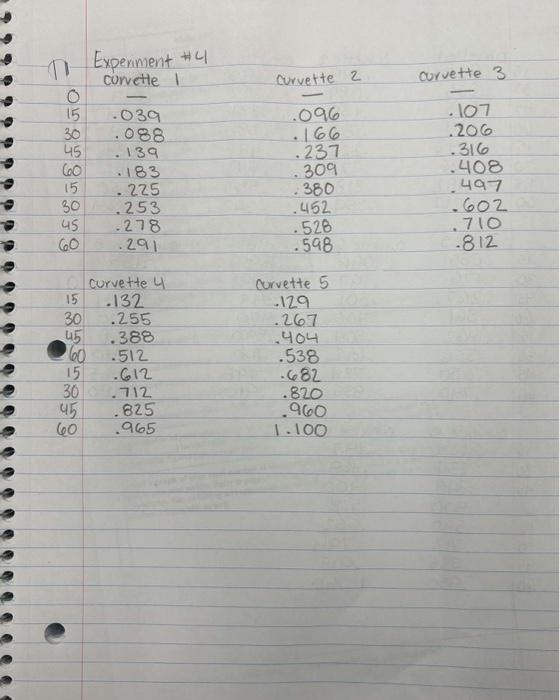 Experiment #4
curvette 1 curvette 2 curvette 3
0 — — —
15 .039 .096 .107
30 .088 .166 .206
45 .139 .237 .316
60 .183 .309 .408
15 .225 .380 .497
30 .253 .452 .602
45 .278 .528 .710
60 .291 .598 .812
curvette 4 curvette 5
15 .132 .129
30 .255 .267
45 .388 .404
60 .512 .538
15 .612 .682
30 .712 .820
45 .825 .960
60 .965 1.100